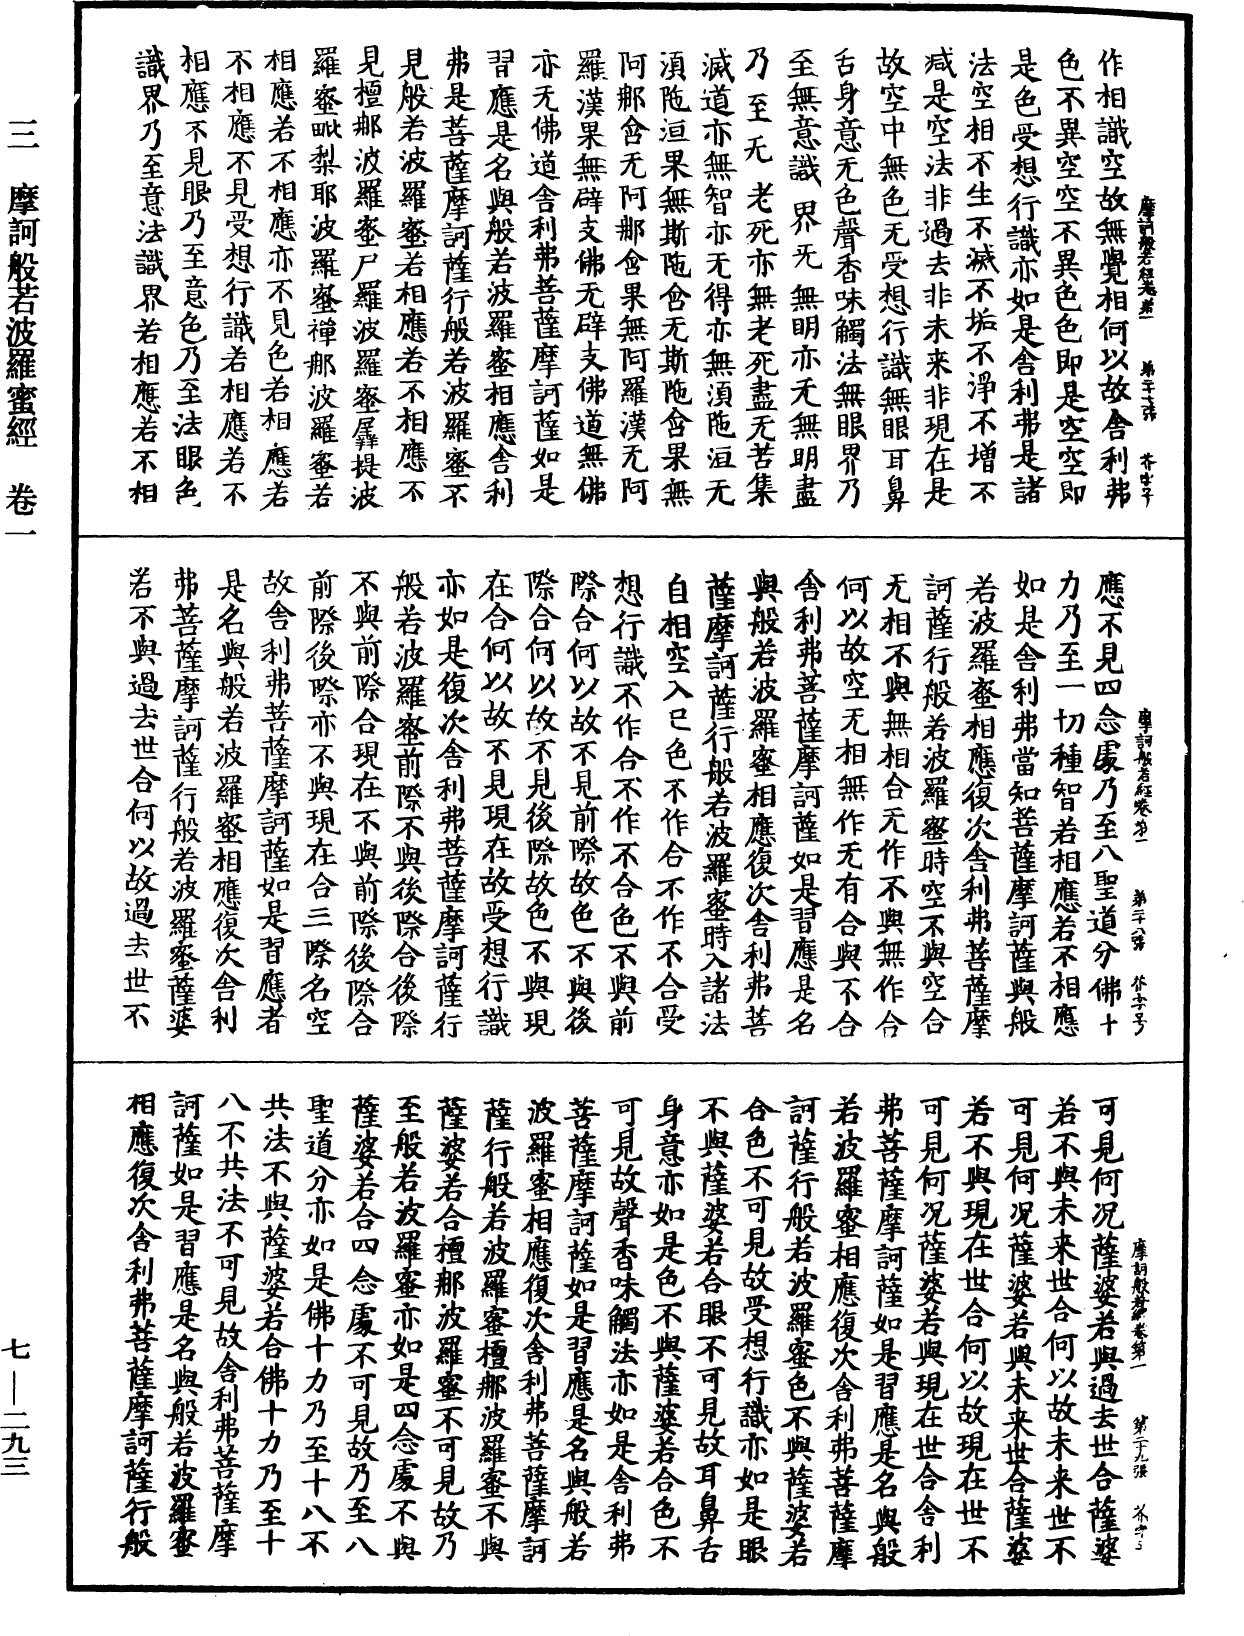 三 摩訶般若波羅蜜經 卷一
七—二九三
摩訶般若經卷第一 第二十七張 芥字号
作相識空故無覺相何以故舍利弗
色不異空空不異色色即是空空即
是色受想行識亦如是舍利弗是諸
法空相不生不滅不垢不淨不增不
减是空法非過去非未来非現在是
故空中無色无受想行識無眼耳鼻
舌身意无色聲香味觸法無眼界乃
至無意識界无無明亦无無明盡
乃至无老死亦無老死盡无苦集
滅道亦無智亦无得亦無湏陁洹无
湏陁洹果無斯陁含无斯陁含果無
阿那含无阿那含果無阿羅漢无阿
羅漢果無辟支佛无辟支佛道無佛
亦无佛道舍利弗菩薩摩訶薩如是
習應是名與般若波羅蜜相應舍利
弗是菩薩摩訶薩行般若波羅蜜不
見般若波羅蜜若相應若不相應不
見檀那波羅蜜尸羅波羅蜜羼提波
羅蜜毗梨耶波羅蜜禪那波羅蜜若
相應若不相應亦不見色若相應若
不相應不見受想行識若相應若不
相應不見眼乃至意色乃至法眼色
識界乃至意法識界若相應若不相
摩訶般若經卷第一 第二十八張 芥字号
應不見四念處乃至八聖道分佛十
力乃至一切種智若相應若不相應
如是舍利弗當知菩薩摩訶薩與般
若波羅蜜相應復次舍利弗菩薩摩
訶薩行般若波羅蜜時空不與空合
无相不與無相合无作不與無作合
何以故空无相無作无有合與不合
舍利弗菩薩摩訶薩如是習應是名
與般若波羅蜜相應復次舍利弗菩
薩摩訶薩行般若波羅蜜時入諸法
自相空入已色不作合不作不合受
想行識不作合不作不合色不與前
際合何以故不見前際故色不與後
際合何以故不見後際故色不與現
在合何以故不見現在故受想行識
亦如是復次舍利弗菩薩摩訶薩行
般若波羅蜜前際不與後際合後際
不與前際合現在不與前際後際合
前際後際亦不與現在合三際名空
故舍利弗菩薩摩訶薩如是習應者
是名與般若波羅蜜相應復次舍利
弗菩薩摩訶薩行般若波羅蜜薩婆
若不與過去世合何以故過去世不
摩訶般若經卷第一 第二十九張 芥字号
可見何况薩婆若與過去世合薩婆
若不與未来世合何以故未来世不
可見何况薩婆若與未来世合薩婆
若不與現在世合何以故現在世不
可見何况薩婆若與現在世合舍利
弗菩薩摩訶薩如是習應是名與般
若波羅蜜相應復次舍利弗菩薩摩
訶薩行般若波羅蜜色不與薩婆若
合色不可見故受想行識亦如是眼
不與薩婆若合眼不可見故耳鼻舌
身意亦如是色不與薩婆若合色不
可見故聲香味觸法亦如是舍利弗
菩薩摩訶薩如是習應是名與般若
波羅蜜相應復次舍利弗菩薩摩訶
薩行般若波羅蜜檀那波羅蜜不與
薩婆若合檀那波羅蜜不可見故乃
至般若波羅蜜亦如是四念處不與
薩婆若合四念處不可見故乃至八
聖道分亦如是佛十力乃至十八不
共法不與薩婆若合佛十力乃至十
八不共法不可見故舍利弗菩薩摩
訶薩如是習應是名與般若波羅蜜
相應復次舍利弗菩薩摩訶薩行般